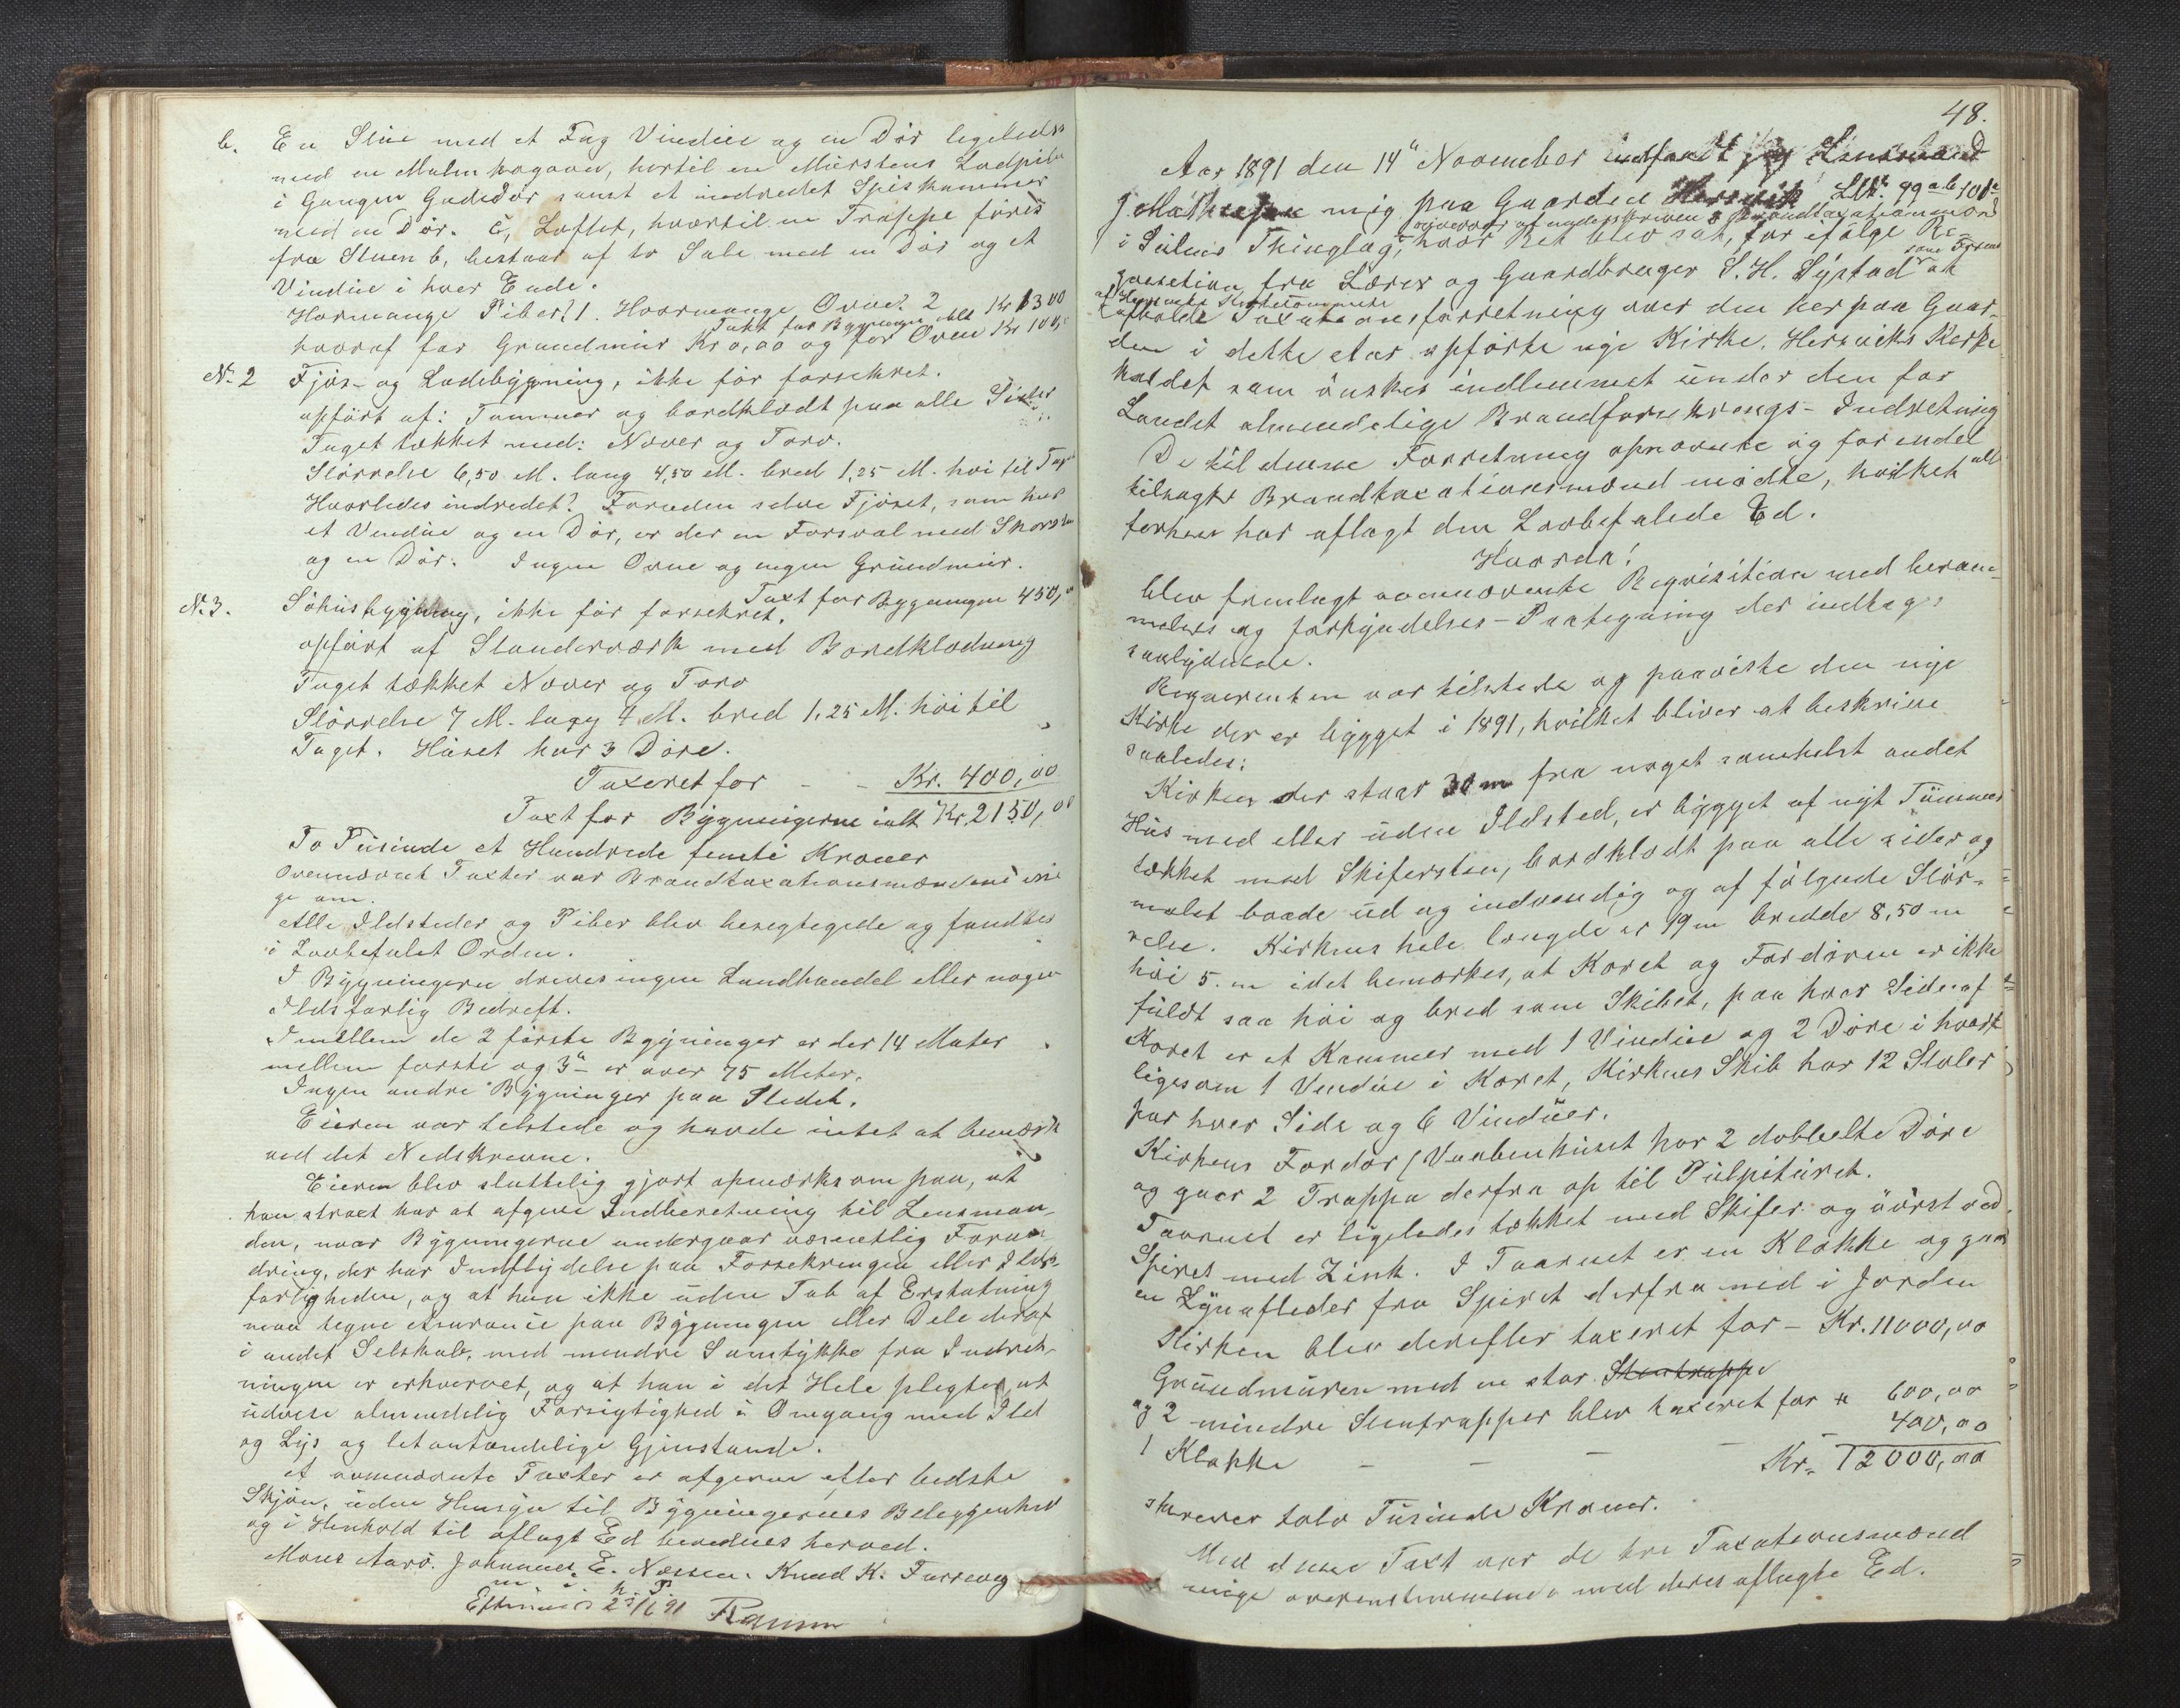 b. En Stue med et Fag Vindue og en Dør ligeledes
med en Malm kogeovn, hertil en Murstens Lodpibe
i Gangen Gadedør samt et indredet Spiskammer
med en Dør. C, Loftet, hvortil en Trappe fører
fra Stuen b, bestaar af to Sale med en Dør og et
Vindue i hver Ende.
Hvormange Piber? 1. Hvormange Ovne? 2
Taxt for Bygningen alt Kr 1300
hvoraf for Grundmur Kr 0,00 og for Ovne Kr 100,
No 2 Fjøs- og Ladebygning, ikke før forsekret.
opført af: Tømmer og bordklædt paa alle Sider
Taget tækket med: Næver og Torv.
Størrelse 6,50 M. lang 4,50 M. bred 1,25 M. høi til Tag
Hvorledes indredet? Foruden selve Fjøset, som har
et Vindue og en Dør, er der en Forsval med
og en Dør. Ingen Ovne og ingen Grundmur.
Taxt for Bygningen 450,"
No 3. Søhusbygning, ikke før forsekret.
opført af Standerværk med Bordklædning
Taget tækket Næver og Torv
Størrelse 7 M. lang 4 M. bred 1,25 M. høi til
Taget. Huset har 3 Døre.
Taxeret for - - Kr. 400,00
Taxt for Bygningerne ialt Kr. 2150,00
To Tusinde et Hundrede femti Kroner
Ovennævnt Taxter var Brandtaxationsmændene eni
ge om.
Alle Ildsteder og Piber blev besegtegede og fandtes
i Lovbefalet Orden.
I Bygningerne drives ingen Landhandel eller nogen
Ildsfarlig Bedreft.
Imellem de 2 første Bygninger er der 14 Meter
mellem første og 3die er over 75 Meter.
Ingen andre Bygninger paa Stedet.
Eieren var tilstede og havde intet at bemærk
ved det Nedskrevne.
Eieren blev sluttelig gjort opmærksom paa, at
han straxt har at afgive Indberetning til Lensman-
den, naar Bygningerne undergaar væsentlig Foran-
dring, der har Indflydelse paa Forsekringen eller Ilds-
farligheden, og at han ikke uden Tab af Erstatning
maa tegne Assurance paa Bygningen eller Dele deraf
i andet Selskab, med mindre Samtykke fra Indret-
ningen er erhvervet, og at han i det Hele plegter at
udvise almendelig Forsigtighed i Omgang med Ild
og Lys og letantændelige Gjenstande.
At ovennævnte Taxter er afgivne efter bedste
Skjøn, uden Hensyn til Bygningernes Beleggenhed
og i Henhold til aflagt Ed bevidnes herved.
Mons Aarø. Johannes E. Nessen. Knud K. Furrevig
m. i. h. P.
Eftersees 25/6 91 Ramm
48.
Aar 1891 den 14" November indfandt jeg Lensmand
J. Mathisen mig paa Gaarden Hersvik LNr. 99 a b 101 a
overværet af underskrivne 3 Brandtaxationsmænd
i Sulens Thinglag, hvor Ret blev sat, for efølge Re-
qvesetion fra Lærer og Gaardbruger S. H. Systad at
afholde Taxations forretning over den her paa Gaar-
den i dette Aar opførte nye Kirke, Hersviks Kerke
kaldet som ønskes indlemmet under den for
Landet almendelige Brandforsekrengs- Indretning
De til denne Forretning opnævnte og forendel
tilsagte Brandtaxationsmænd mødte, hvilket alle
forhen har aflagt den Lovbefalede Ed.
Hvorda!
blev fremlagt ovennævnte Reqvisition med beram-
melses og forkyndelses- Paategning der indtages
saalydende.
Reqvirenten var tilstede og paaviste den nye
Kirke der er bygget i 1891, hvilket bliver at beskrive
saaledes:
Kirken der staar 30 m fra noget somhelst andet
Hus med eller uden Ildsted, er bygget af nyt Tømmer
tækket med Skifersten, bordklædt paa alle sider og
malet baade ud og indvendig og af følgende Stør-
relse. Kirkens hele længde er 19 m bredde 8,50 m
høi 5. m idet bemærkes, at Koret og Fordøren er ikke
fuldt saa høi og bred som Skibet, paa hver Side af
Koret er et Kammer med 1 Vindue og 2 Døre i hvert
ligesom 1 Vendue i Koret, Kirkens Skib har 12 Stoler
paa hver Side og 6 Vinduer.
Kirkens Fordør (Vaabenhuset har 2 dobbelte Døre
og gaar 2 Trappe derfra op til Pulpituret.
Taarnet er ligeledes tækket med Skifer og øverst ved
Spiret med Zink. I Taarnet er en Klokke og gaar
en Lynafleder fra Spiret derfra ned i Jorden
Kirken blev derefter taxeret for - Kr. 11000,00
Grundmuren med en stor Stentrappe
og 2 mindre Stentrapper blev taxeret for " 600,00
1 Klokke - - - - 400,00
Kr. 12000,00
skrever tolv Tusinde Kroner.
Med denne Taxt var de tre Taxationsmænd
enige overenstemmende med deres aflagte Ed.